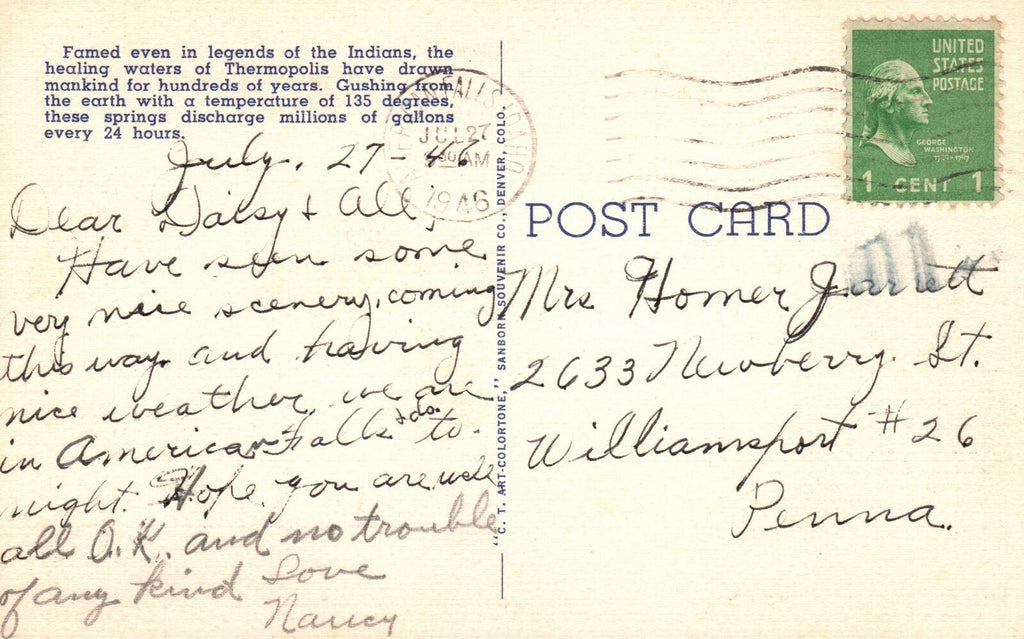 Famed even in legends of the Indians, the
healing waters of Thermopolis have drawn
mankind for hundreds of years. Gushing from
the earth with a temperature of 135 degrees,
these springs discharge millions of gallons
every 24 hours.
July. 27 - 46
Dear Daisy & All,
Have seen some
very nice scenery, coming
this way and having
nice weather, we are
in American Falls to-
night. Hope you are
all O.K. and no trouble
of any kind Love
Nancy
"C. T. ART-COLORTONE," SANBORN SOUVENIR CO., DENVER, COLO.
AMERICAN FALLS IDAHO
JUL 27
30 AM
1946
UNITED
STATES
POSTAGE
GEORGE
WASHINGTON
1 CENT 1
POST CARD
Mrs Homer Jarrett
2633 Newberry. St.
Williamsport #26
Penna.